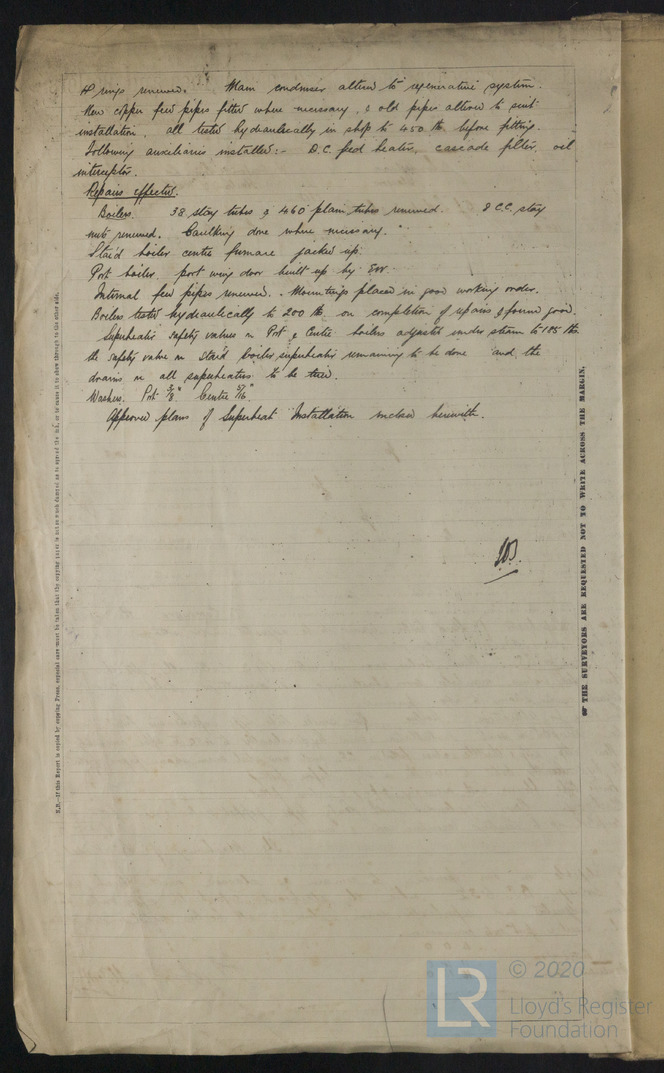 & rings renewed. Main condenser altered to regenerative system.
New copper feed pipes fitted where necessary, & old pipes altered to suit
installation, all tested hydraulically in shop to 450 lb. before fitting.
Following auxiliaries installed:- D.C. feed heater, cascade filter, oil
interceptor.
Repairs effected.
Boilers. 38 stay tubes & 460 plain tubes renewed. 8 C.C. stay
nuts renewed. Caulking done where necessary.
Starbd boiler centre furnace jacked up.
Port boiler port wing door built up by EW.
Internal feed pipes renewed. Mountings placed in good working order.
Boilers tested hydraulically to 200 lb. on completion of repairs & found good.
Superheater safety valves on Port & Centre boilers adjusted under steam to 185 lbs.
the safety valve on Starbd boiler superheater remaining to be done and the
drains on all superheaters to be tried.
Washers. Port 3/8" Centre 5/16".
Approved plans of Superheat Installation enclosed herewith.
N.B.—If this Report is copied by copying Press, especial care must be taken that the copying paper is not so much damped as to spread the ink, or to cause it to show through to the other side.
☞ THE SURVEYORS ARE REQUESTED NOT TO WRITE ACROSS THE MARGIN.
LR
© 2020
Lloyd's Register
Foundation